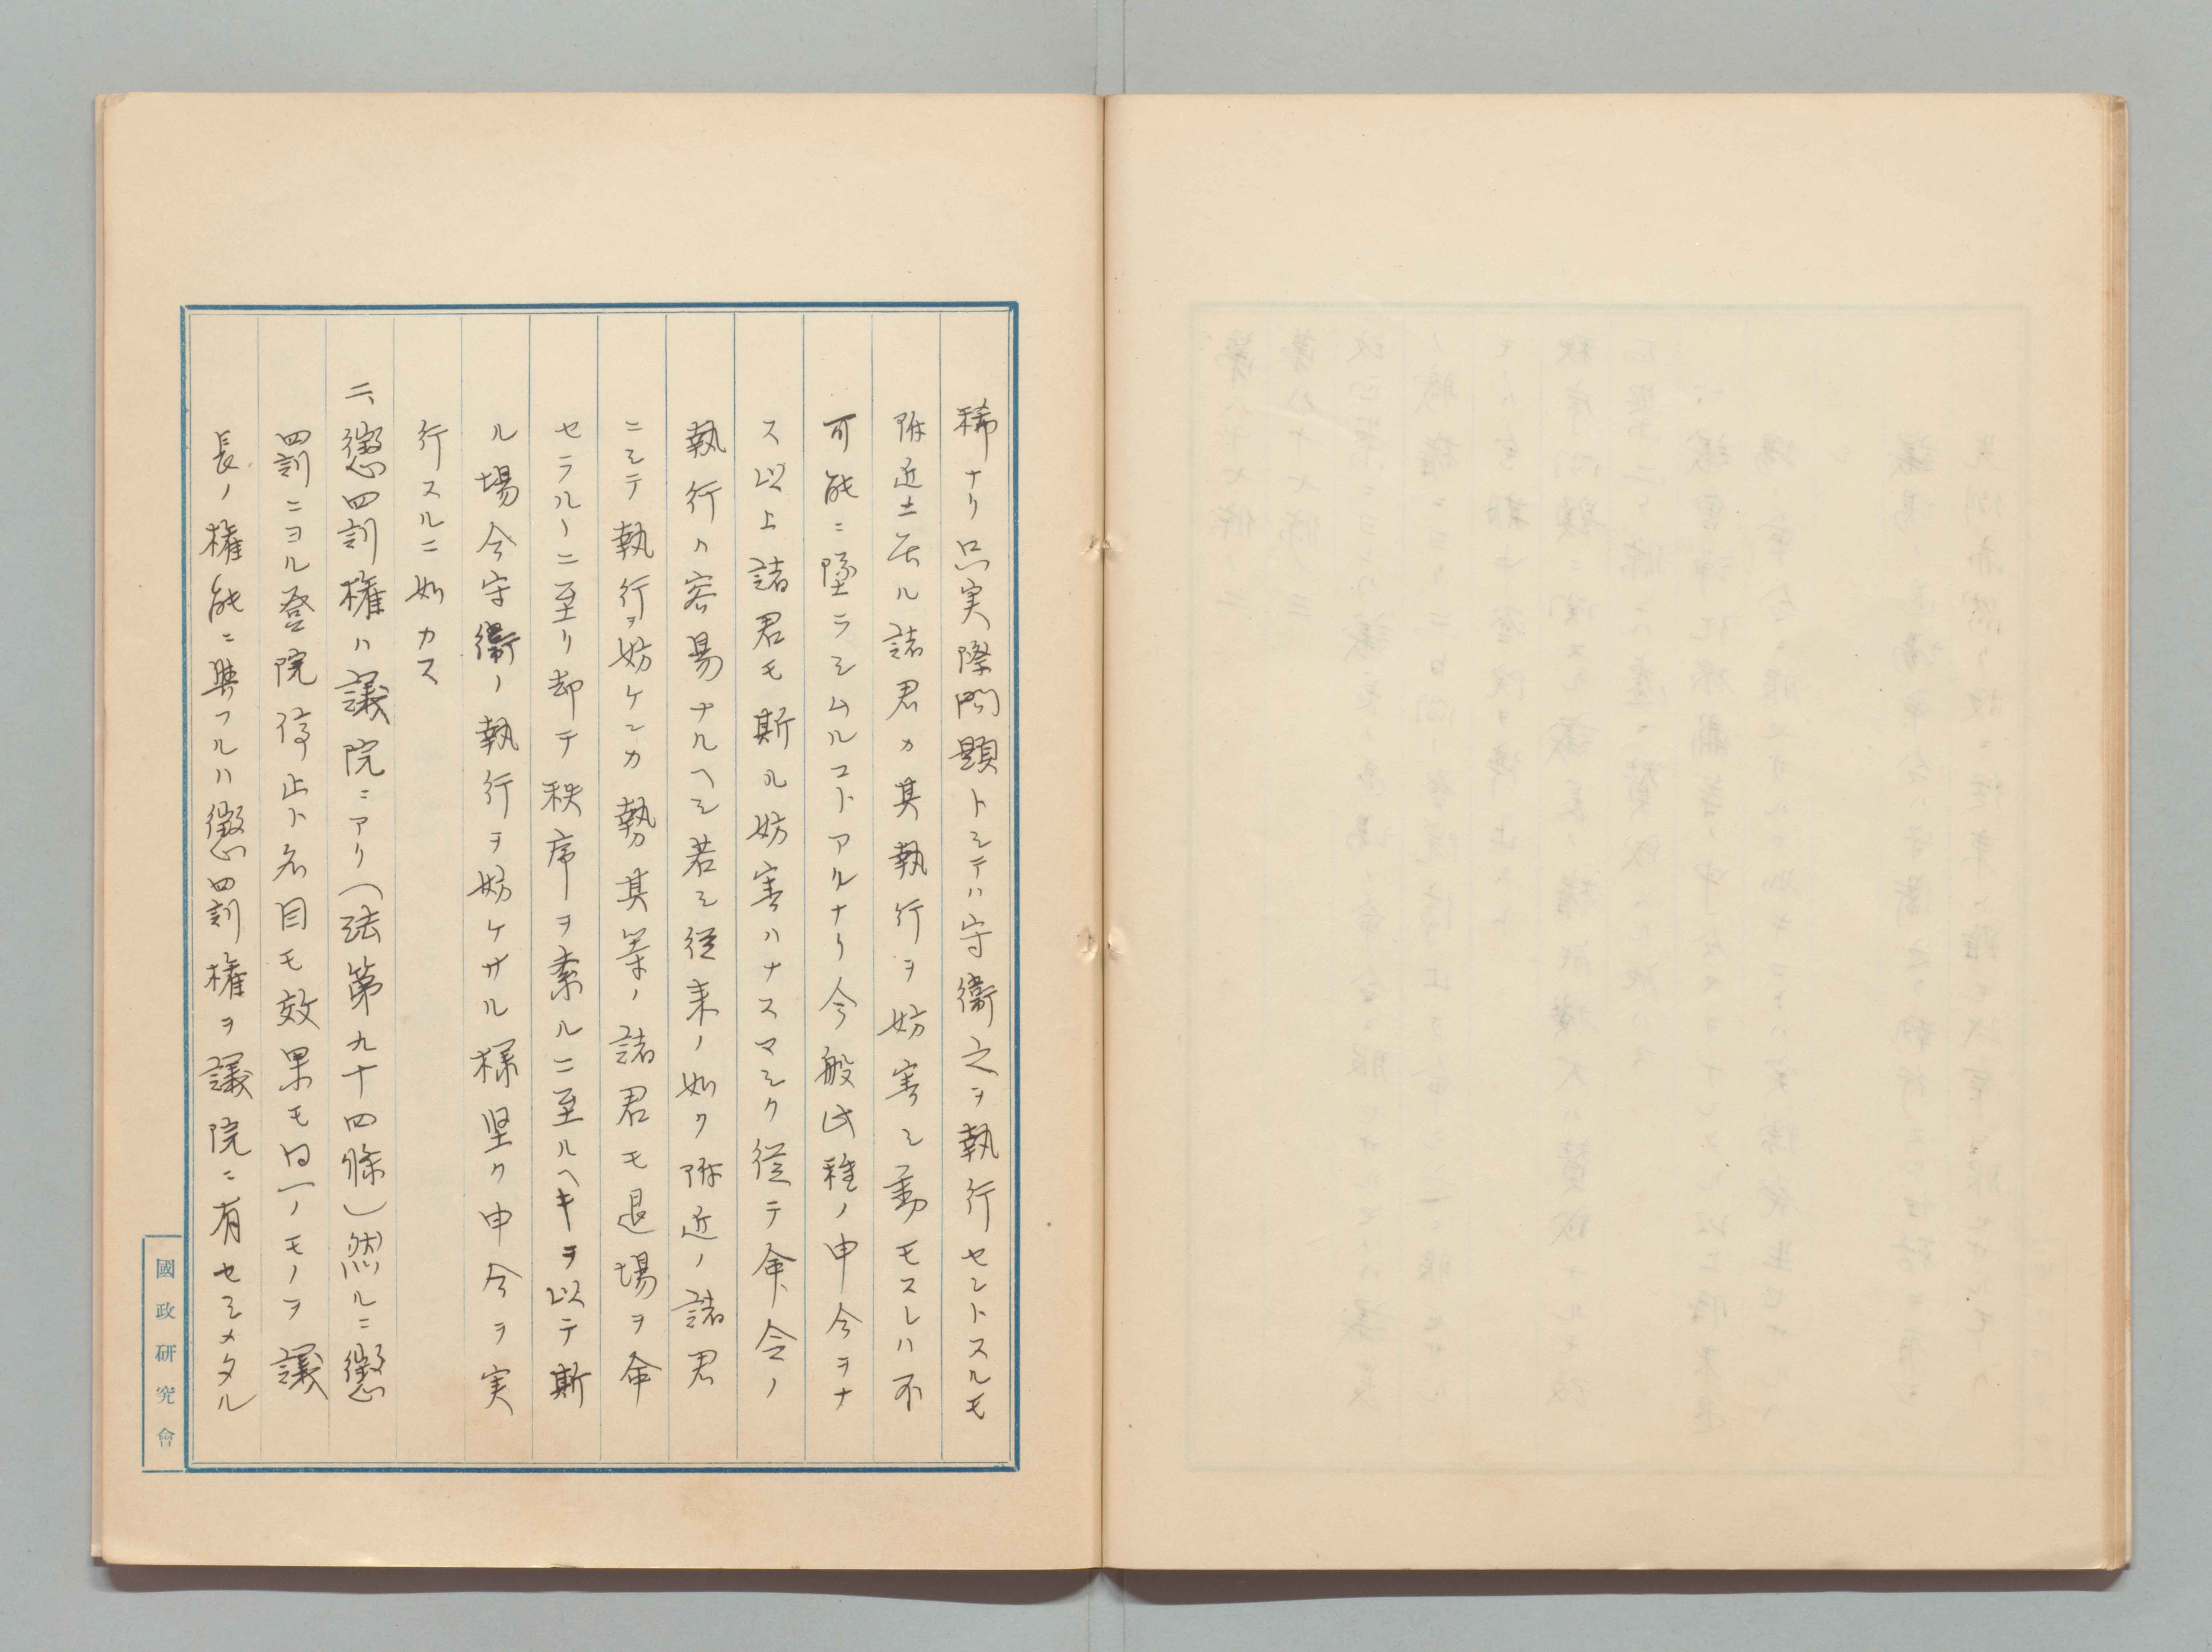 稀ナリ只実際問題トシテハ守衞之ヲ執行セントスルモ
附近ニ居ル諸君カ其執行ヲ妨害シ動モスレハ不
可能ニ墜ラシムルコトアルナリ今般此種ノ申合ヲナ
ス以上諸君モ斯ル妨害ハナスマシク従テ命令ノ
執行ハ容易ナルヘシ若シ従来ノ如ク附近ノ諸君
ニシテ執行ヲ妨ケンカ勢其等ノ諸君モ退場ヲ命
セラルヽニ至リ却テ秩序ヲ紊ルニ至ルヘキヲ以テ斯
ル場合守衞ノ執行ヲ妨ケサル様堅ク申合ヲ実
行スルニ如カス
二、懲罰権ハ議院ニアリ(法第九十四條)然ルニ懲
罰ニヨル登院停止ト名目モ效果モ同一ノモノヲ議
長ノ権能ニ與フルハ懲罰権ヲ議院ニ有セシメタル
國政研究會